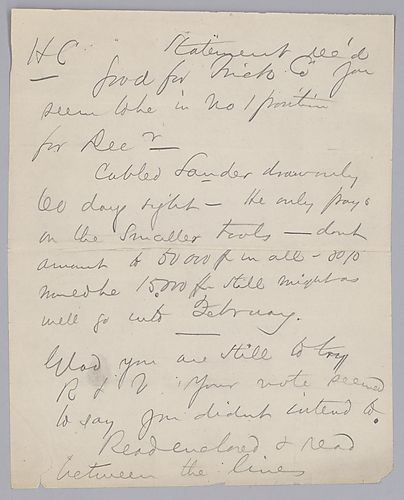 H C Statement rec'd
good for Frick Co you
seem to be in No 1 position
for Decr
Cabled Lauder draw only
60 days sight – He only pays
on the smaller tools – dont
amount to 50 000 £ in all – 30%
would be 15,000 £ still might as
well go into February.
Glad you are still to try
R & V Your note seemed
to say you didnt intend to.
Read enclosed & read
between the lines